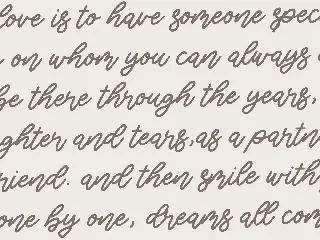 love is to have someone spec
on whom you can always
be there through the years,
ghter and tears,as a partn
riend. and then smile with
one by one, dreams all com